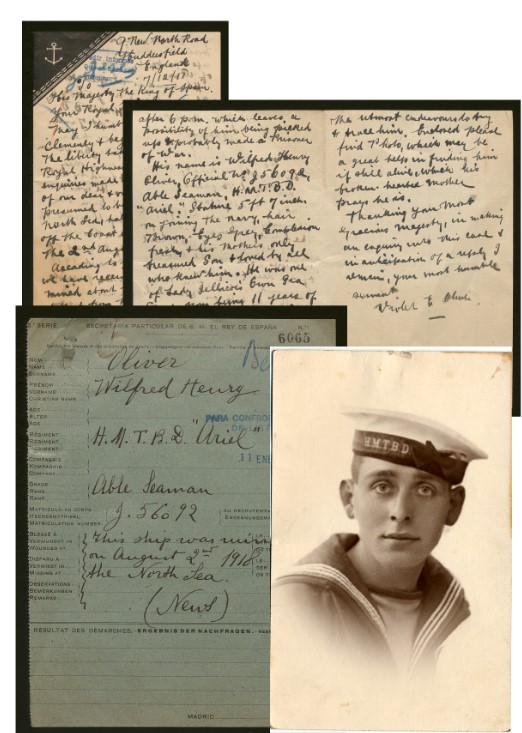 9 New North Road
Huddersfield
England
7/12/18
His Majesty the King of Spain.
Your Royal
May I hum
Clemency & be
The liberty ta
Royal Highne
enquiries made
of our dear &
presumed to b
North Sea, hat
off the Coast
The 2nd Aug
According to
we have recei
mined about
after 6 p.m. which leaves, a
possibility of him being picked
up & probably made a Prisoner
of War.
His name is Wilfred Henry
Oliver, Official No J 56092,
Able Seaman, H.M.T.B.D.
"Ariel". Stature 5ft 7 inch.
on joining the navy, hair
Brown, Eyes Grey, Complexion
fresh, & his Mothers only
treasured Son & loved by all
who knew him. He was one
of Lady Jellicoe's Own Sea
11 years of
The utmost endeavours to try
& trace him. Enclosed please
find Photo, which may be
a great help in finding him
if still alive, which his
broken-hearted Mother
prays he is.
Thanking your Most
Gracious Majesty, in making
an enquiry into this case &
in anticipation of a reply I
remain, your most humble
servant
Violet E Oliver
SERIE
SECRETARÍA PARTICULAR DE S. M. EL REY DE ESPAÑA
6065
NOM
NAME
SURNAME
Oliver
Be
PRÉNOM
VORNAME
CHRISTIAN NAME
Wilfred Henry
AGE
ALTER
AGE
PARA CONFRO
RÉGIMENT
REGIMENT
REGIMENT
H.M.T.B.D. "Ariel"
11 ENE
COMPAGNIE
KOMPAGNIE
COMPANY
GRADE
RANG
RANK
Able Seaman
MATRICULE AU CORPS
MATRICULATION NUMBER
J. 56092
BLESSÉ À
VERWUNDET IN
WOUNDED AT
This ship was mine
DISPARU À
VERMISST IN
MISSING AT
on August 2nd 1918
the North Sea.
OBSERVATIONS
BEMERKUNGEN
REMARKS
(News)
RÉSULTAT DES DÉMARCHES.-ERGEBNIS DER NACHFRAGEN.-
MADRID
H.M.T.B.D